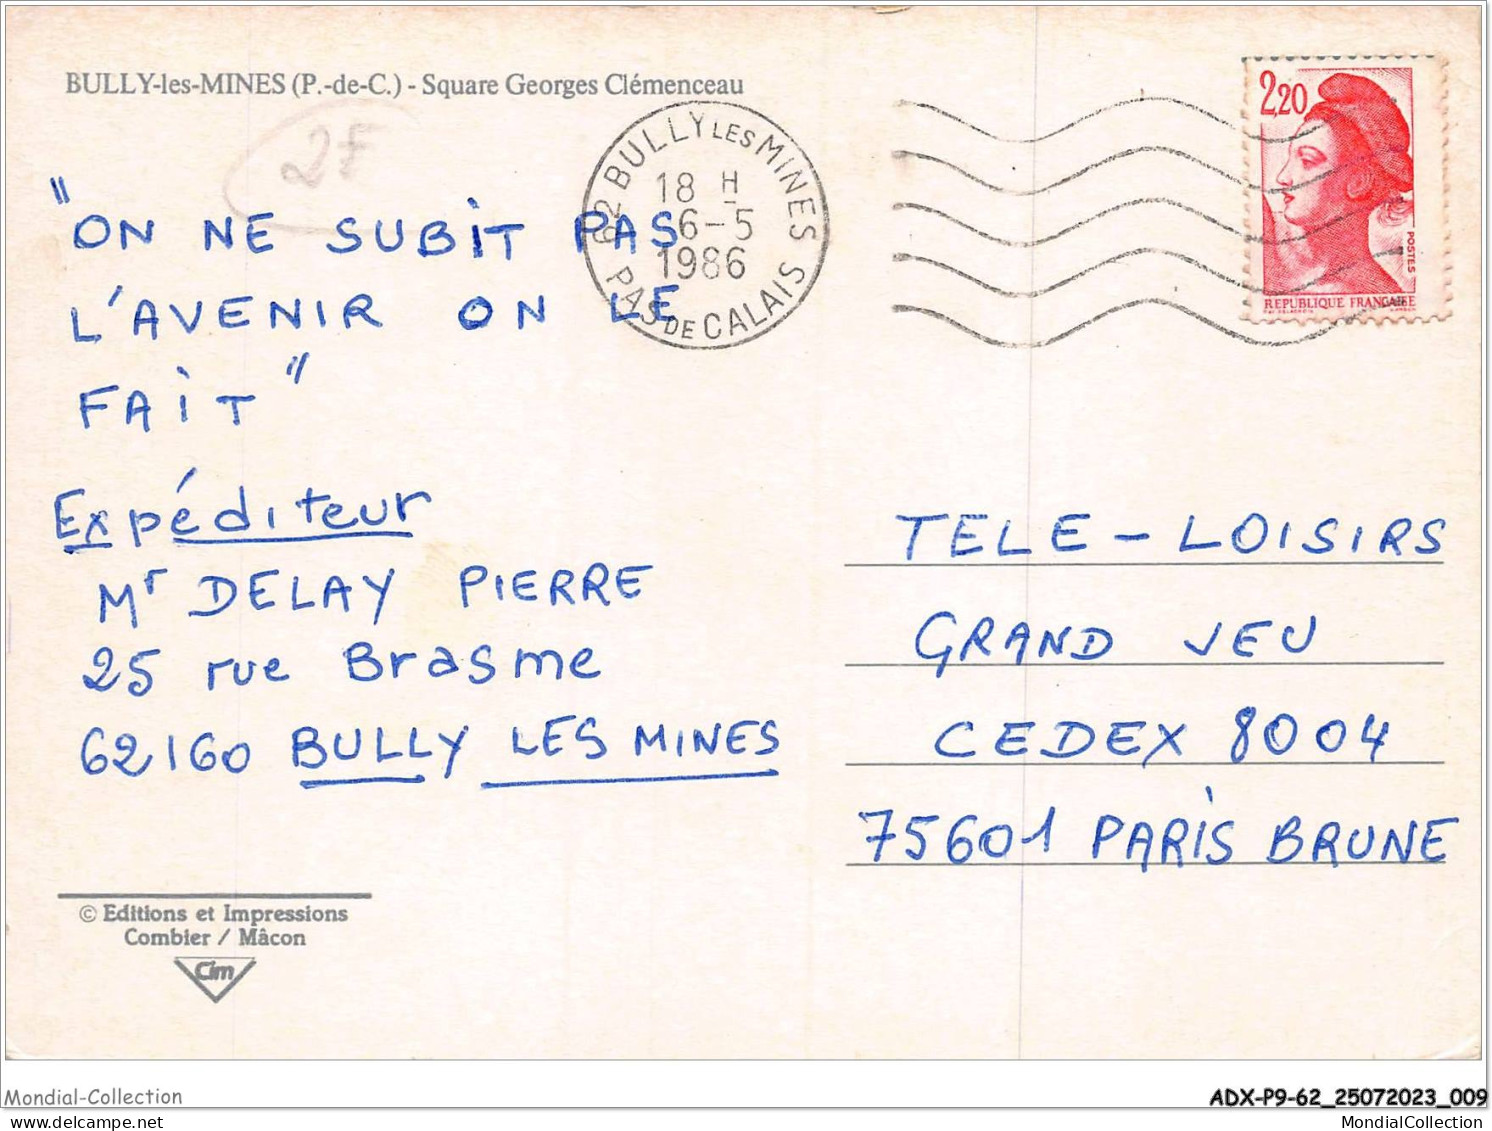 BULLY-les-MINES (P.-de-C.) - Square Georges Clémenceau
2F
62 BULLY LES MINES
18 H
6-5
1986
PAS DE CALAIS
2,20
POSTES
REPUBLIQUE FRANÇAISE
"ON NE SUBIT PAS
L'AVENIR ON LE
FAIT"
Expéditeur
Mr DELAY PIERRE
25 rue Brasme
62160 BULLY LES MINES
TELE-LOISIRS
GRAND JEU
CEDEX 8004
75601 PARIS BRUNE
© Editions et Impressions
Combier / Mâcon
Cim
Mondial-Collection
ADX-P9-62_25072023_009
MondialCollection